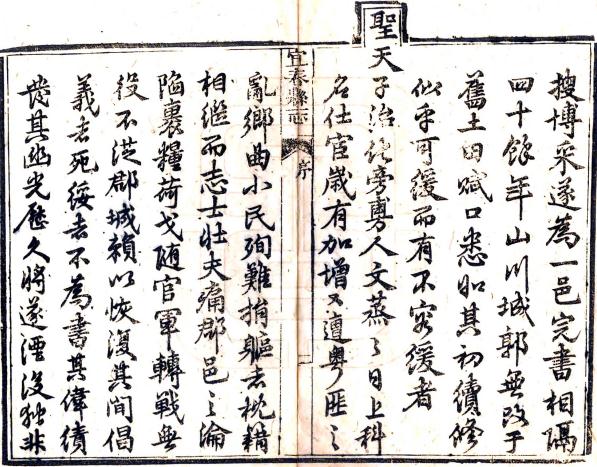 搜博采遂為一邑完書相隔
四十餘年山川城郭無改于
舊土田賦口悉如其初續修
似乎可緩而有不容緩者
聖天子治化旁敷人文蒸々日上科
名仕宦歲有加增又遭粵匪之
宜春縣志 序
亂鄉曲小民殉難捐軀者枕藉
相繼而志士壯夫痛郡邑之淪
陷裹糧荷戈隨官軍轉戰無
役不從郡城賴以恢復其間倡
義者死綏者不為書其偉績
幾其幽光歷久將遂湮沒殊非